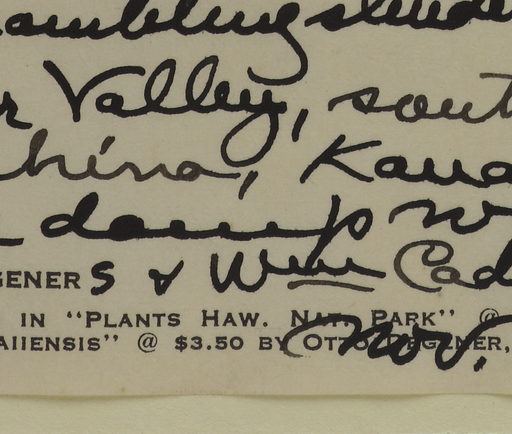 ambling slende
r Valley, sout
hina, Kaua
damp w
GENERS & Wm Cad
IN "PLANTS HAW. NAT. PARK" @
AIIENSIS" @ $3.50 BY OTTO DEGENER,
Nov.